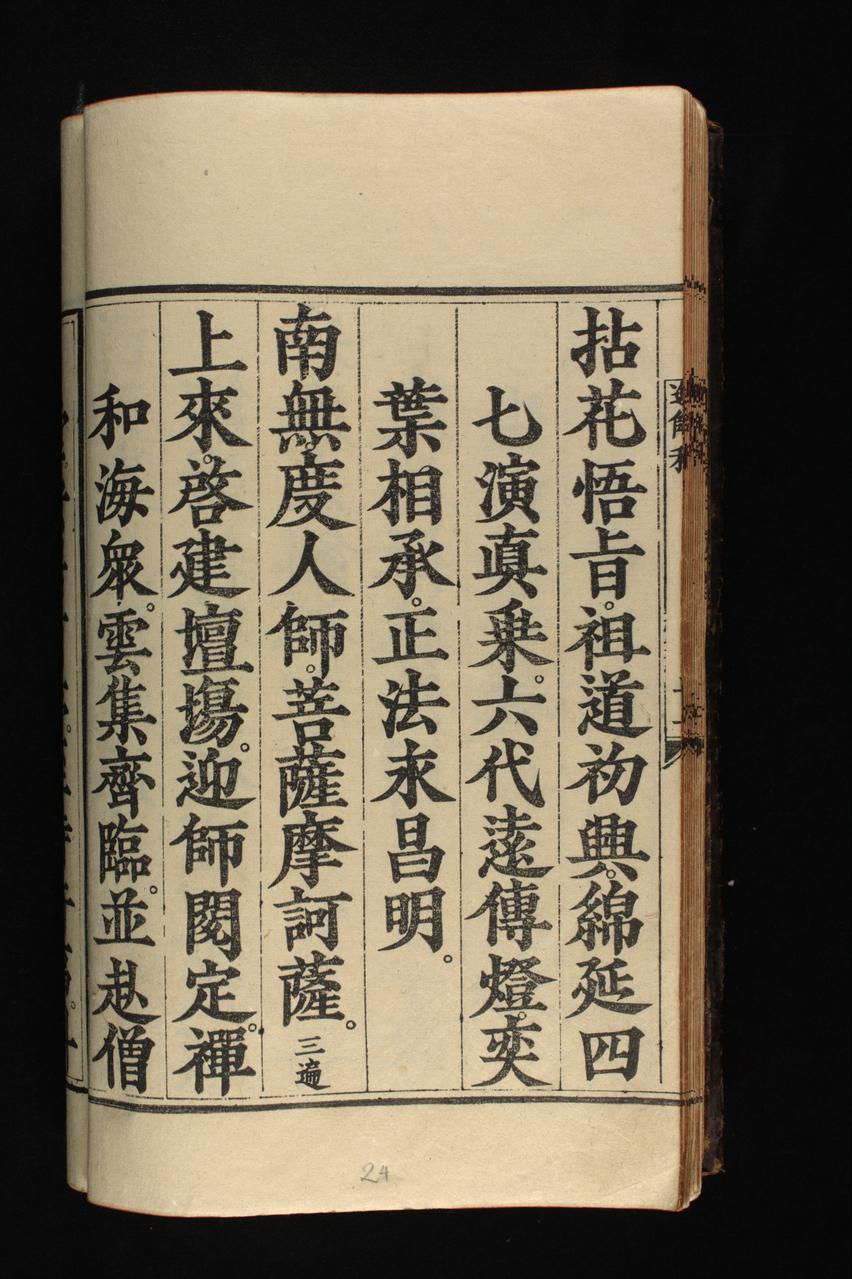 拈花悟㫖。祖道初興。綿延四
七演真乗。六代遠傳燈。奕
葉相承。正法永昌明。
南無度人師。菩薩摩訶薩。三遍
上來。啓建壇場。迎師閱定。禪
和海衆。雲集齊臨。並赴僧
24